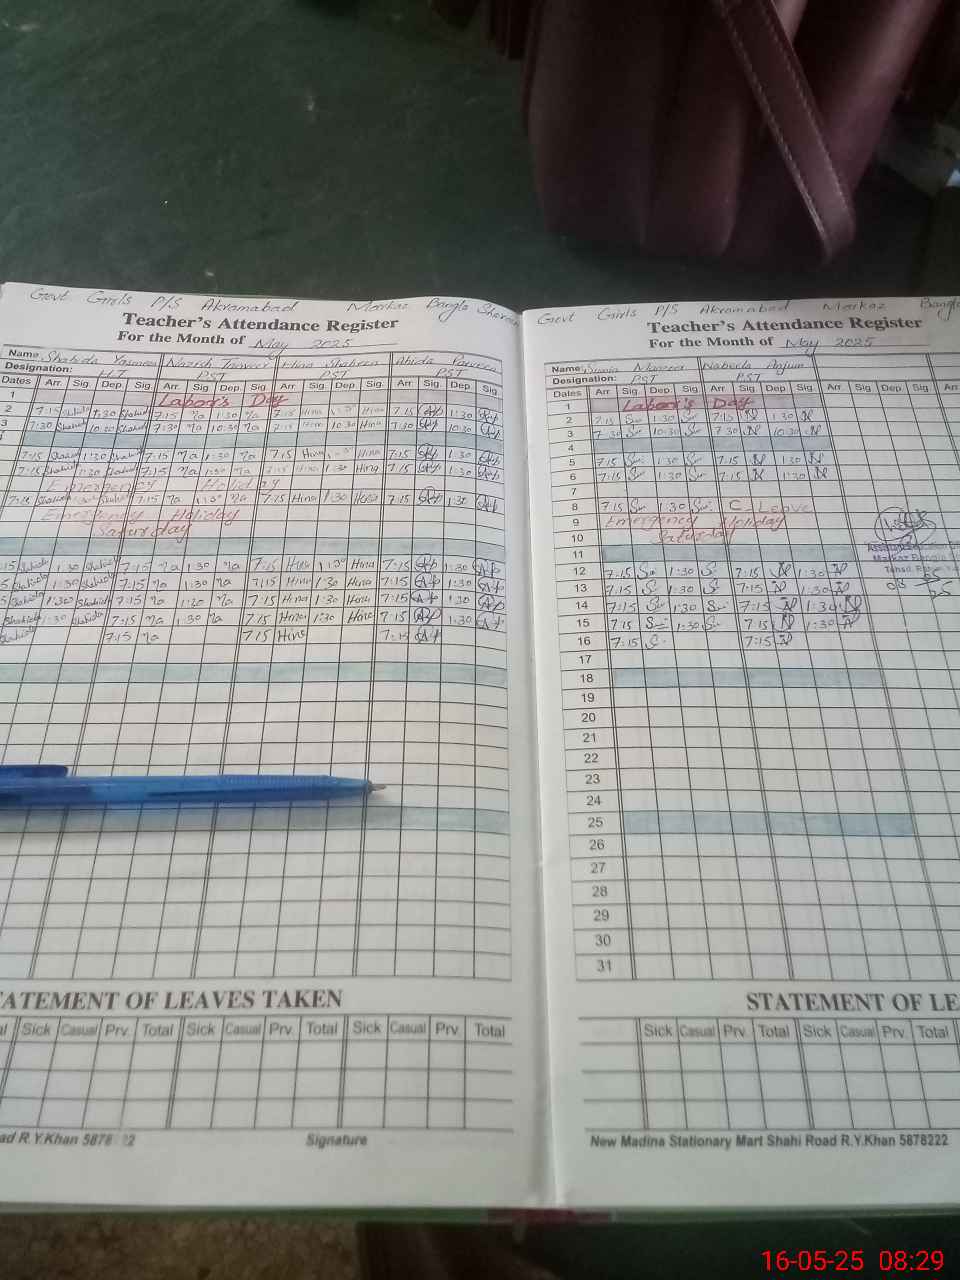 Govt Girls P/S Akramabad Markaz Bangla
Teacher's Attendance Register
For the Month of May 2025
Name Shahida Yasmeen Nazish Tanveer Hina Shaheen Abida Parveen
Designation: H.T PST PST PST
Dates Arr. Sig. Dep. Sig. Arr. Sig. Dep. Sig. Arr. Sig. Dep. Sig. Arr. Sig. Dep. Sig.
1 Labour's Day
2 7:15 Shahida 1:30 Shahida 7:15 Na 1:30 Na 7:15 Hina 1:30 Hina 7:15 1:30
3 7:30 Shahida 10:30 Shahida 7:30 Na 10:30 Na 7:15 Hina 10:30 Hina 7:30 10:30
7:15 Shahida 1:30 Shahida 7:15 Na 1:30 Na 7:15 Hina 1:30 Hina 7:15 1:30
7:15 Shahida 1:30 Shahida 7:15 Na 1:30 Na 7:15 Hina 1:30 Hina 7:15 1:30
Emergency Holiday
7:15 Shahida 1:30 Shahida 7:15 Na 1:30 Na 7:15 Hina 1:30 Hina 7:15 1:30
Emergency Holiday
Saturday
15 Shahida 1:30 Shahida 7:15 Na 1:30 Na 7:15 Hina 1:30 Hina 7:15 1:30
5 Shahida 1:30 Shahida 7:15 Na 1:30 Na 7:15 Hina 1:30 Hina 7:15 1:30
5 Shahida 1:30 Shahida 7:15 Na 1:30 Na 7:15 Hina 1:30 Hina 7:15 1:30
Shahida 1:30 Shahida 7:15 Na 1:30 Na 7:15 Hina 1:30 Hina 7:15 1:30
Shahida 7:15 Na 7:15 Hina 7:15
STATEMENT OF LEAVES TAKEN
Sick Casual Prv. Total Sick Casual Prv. Total Sick Casual Prv Total
ad R.Y.Khan 5878 22 Signature
Govt Girls P/S Akramabad Markaz Bangla
Teacher's Attendance Register
For the Month of May 2025
Name: Nabeela Anjum
Designation: PST PST
Dates Arr. Sig. Dep. Sig. Arr. Sig. Dep. Sig. Arr. Sig. Dep. Sig. Arr
1 Labour's Day
2 7:15 1:30 7:15 1:30
3 7:30 10:30 7:30 10:30
4
5 7:15 1:30 7:15 1:30
6 7:15 1:30 7:15 1:30
7
8 7:15 1:30 C-Leave
9 Emergency Holiday
10 Saturday
11
12 7:15 1:30 7:15 1:30
13 7:15 1:30 7:15 1:30
14 7:15 1:30 7:15 1:30
15 7:15 1:30 7:15 1:30
16 7:15 7:15
17
18
19
20
21
22
23
24
25
26
27
28
29
30
31
STATEMENT OF LE
Sick Casual Prv. Total Sick Casual Prv. Total
New Madina Stationary Mart Shahi Road R.Y.Khan 5878222
16-05-25 08:29